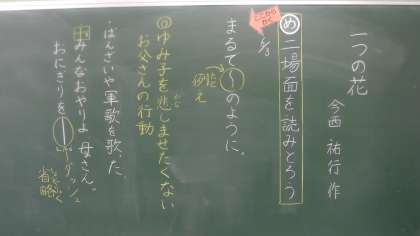 一つの花
今西 祐行 作
ここからかく
6/3
め 二場面を読みとろう
まるで～のように。
例え
たと
◎ゆみ子を悲しませたくない
かな
お父さんの行動
・ばんざいや軍歌を歌った
・みんなおやりよ 母さん。
おにぎりを―
ダッシュ
省略
しょうりゃく